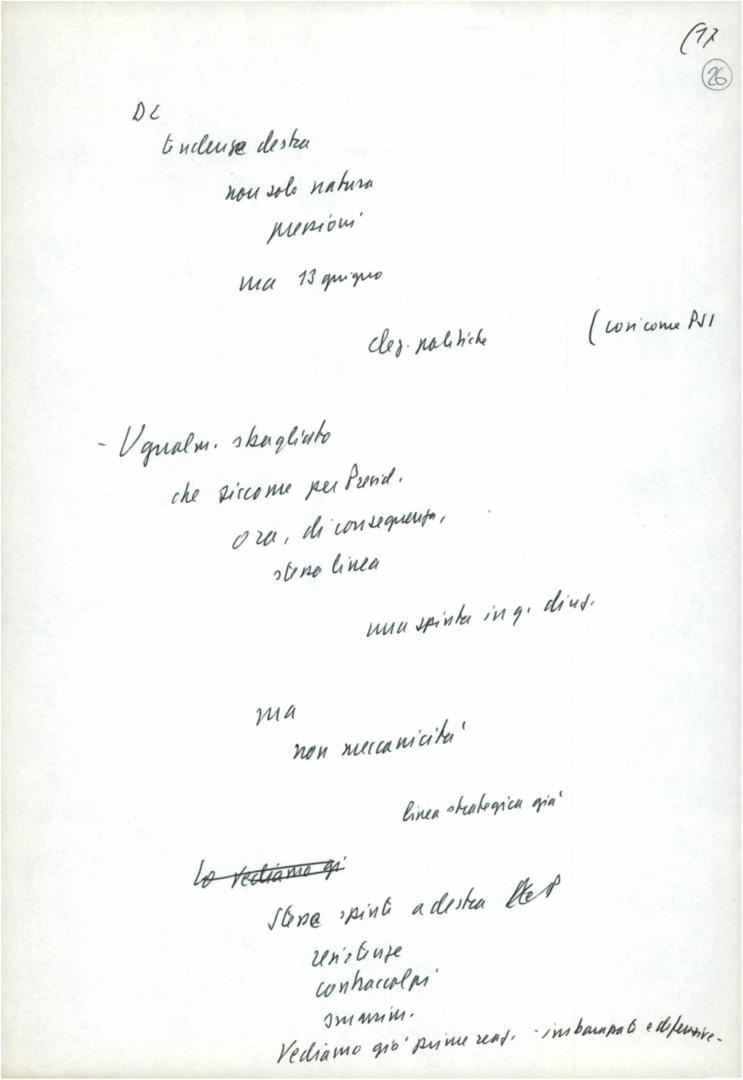 (17
26
DC
tendenze destra
non solo natura
pressioni
ma 13 giugno
elez. politiche (così come PSI
- Ugualm. sbagliato
che siccome per Presid.
ora, di conseguenza,
stessa linea
una spinta in q. direz.
ma
non meccanicità
linea strategica già
Lo vediamo già
stessa spinta a destra
resistenze
contraccolpi
smarrim.
Vediamo già prime reaz. - imbarazzati e difensive -